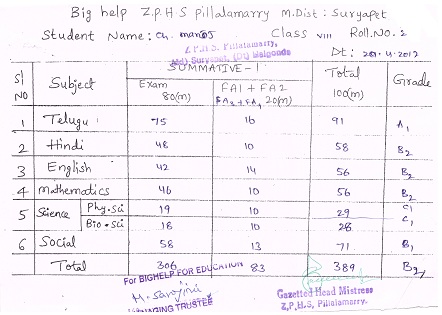 Big help Z.P.H.S pillalamarry M.Dist : Suryapet
Student Name : Ch. manoj Class VIII Roll.No. 2
Z.P.H.S. Pillalamarry,
Suryapet, (Dt) Nalgonda
Dt: 4-2017
Sl NO Subject SUMMATIVE - I Total 100(m) Grade
Exam 80(m) FA1 + FA2 20(m)
1 Telugu 75 16 91 A1
2 Hindi 48 10 58 B2
3 English 42 14 56 B2
4 mathematics 46 10 56 B2
5 Science Phy.sci 19 10 29 C1
Bio.sci 18 10 28 C1
6 Social 58 13 71 B1
Total 306 83 389 B2
For BIGHELP FOR EDUCATION
MANAGING TRUSTEE
Gazetted Head Mistress
Z.P.H.S, Pillalamarry.